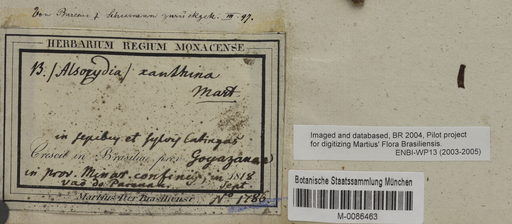 Von Bureau & Schumann zurückgek. III. 97.
HERBARIUM REGIUM MONACENSE
B. (Alsocydia) xanthina
Mart
in sepibus et sylvis Catingas
Crescit in Brasiliae prov. Goyazanae
in prov. Minar. confiniis, in 1818
Vao do Paranan. Sept
Martius Iter Brasiliense. No 1786
Imaged and databased, BR 2004, Pilot project
for digitizing Martius' Flora Brasiliensis.
ENBI-WP13 (2003-2005)
Botanische Staatssammlung München
M-0086463